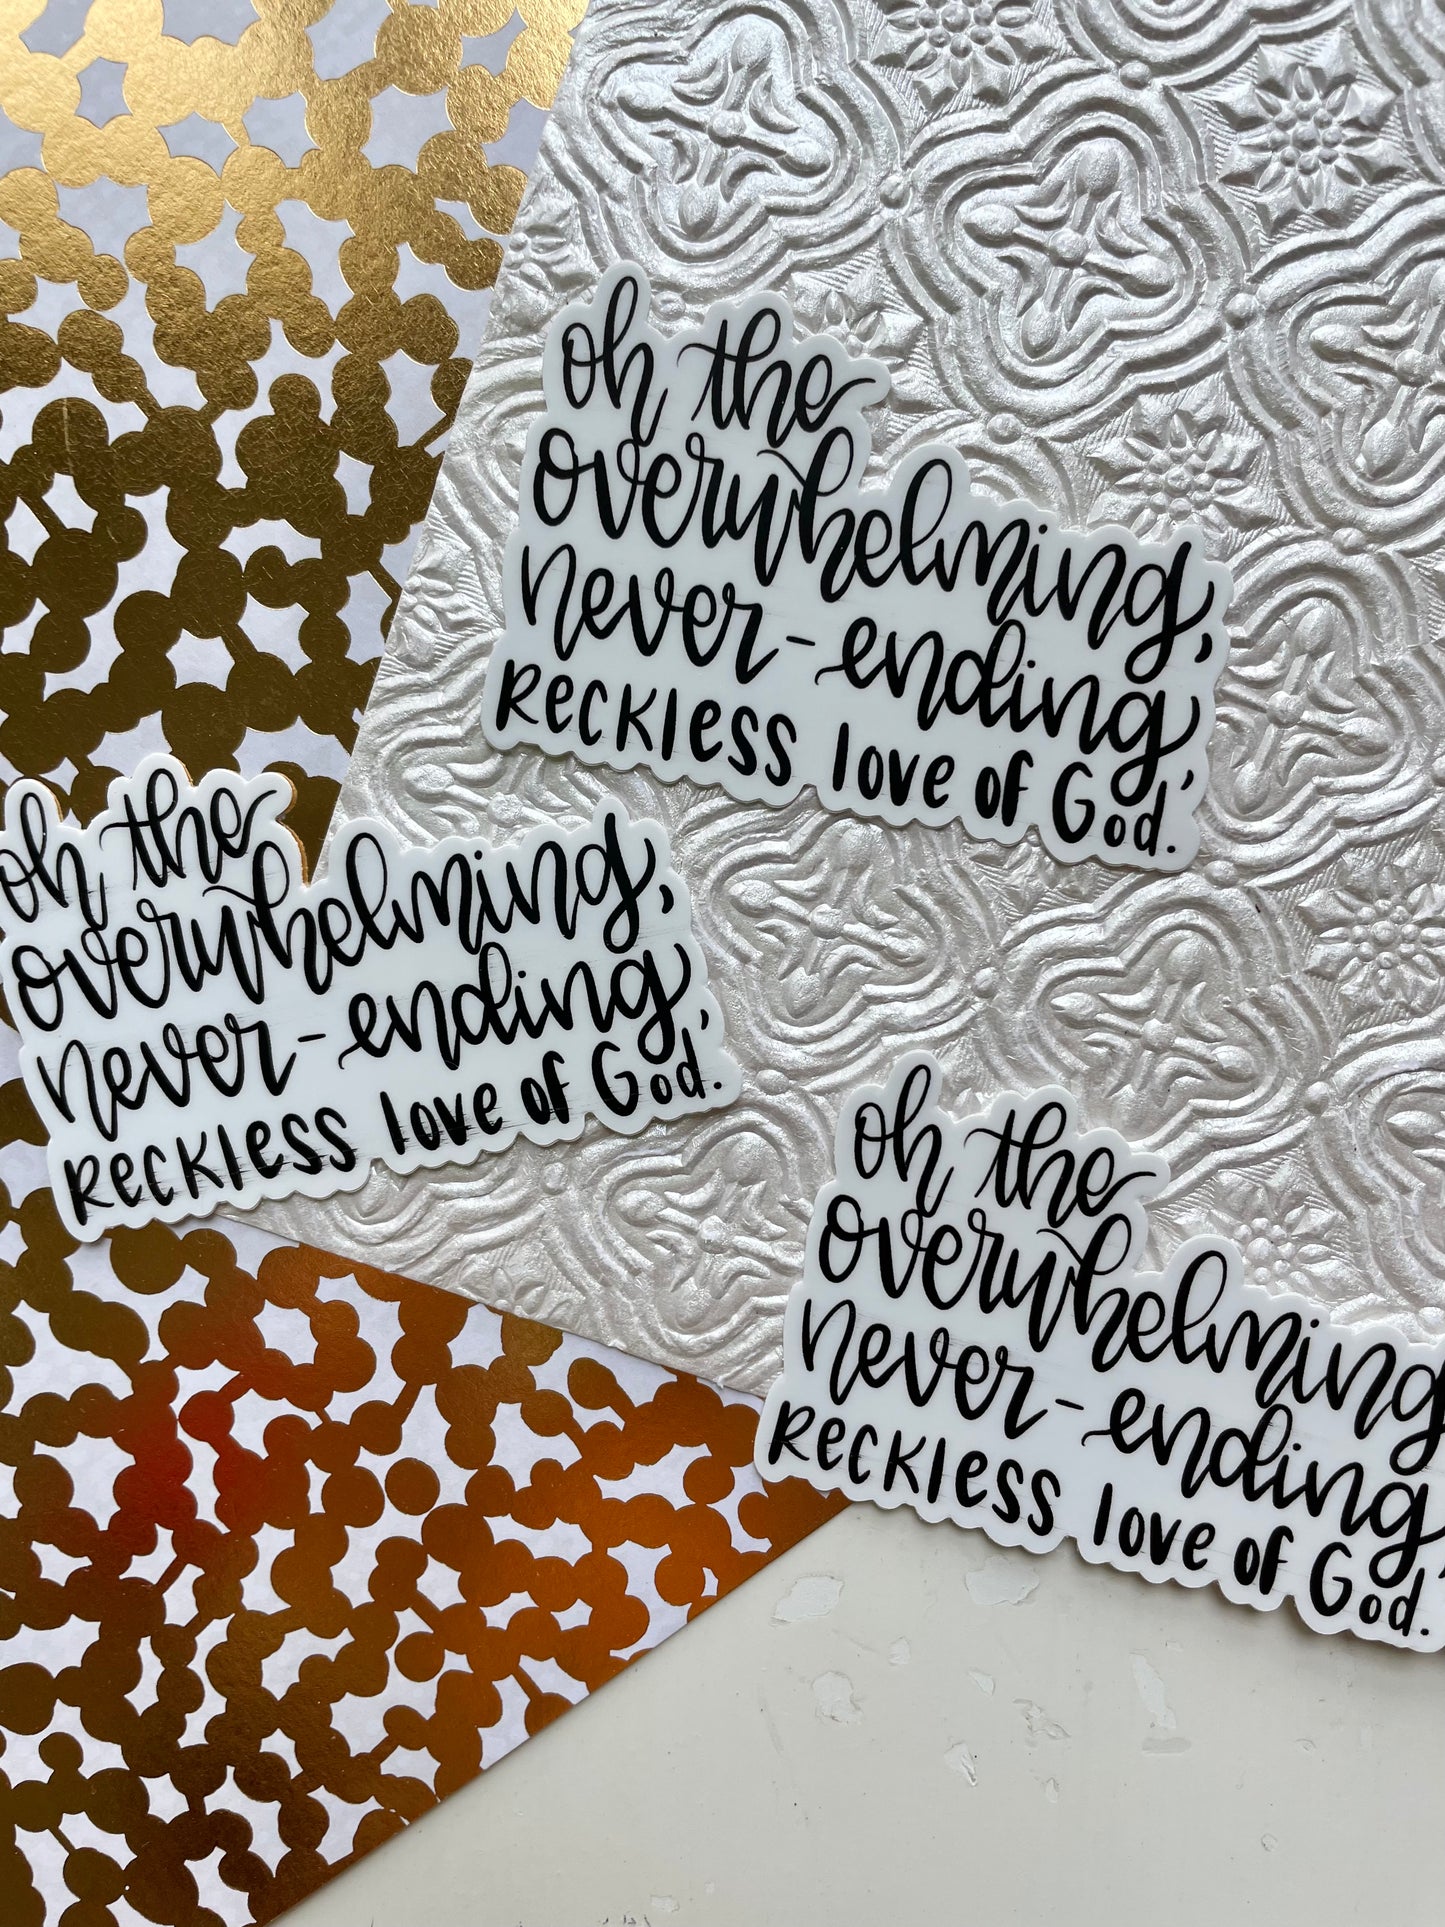 oh the
overwhelming,
never-ending,
RecKless love of God.
oh the
overwhelming,
never-ending,
RecKless love of God.
oh the
overwhelming
never-ending,
RecKless love of God.